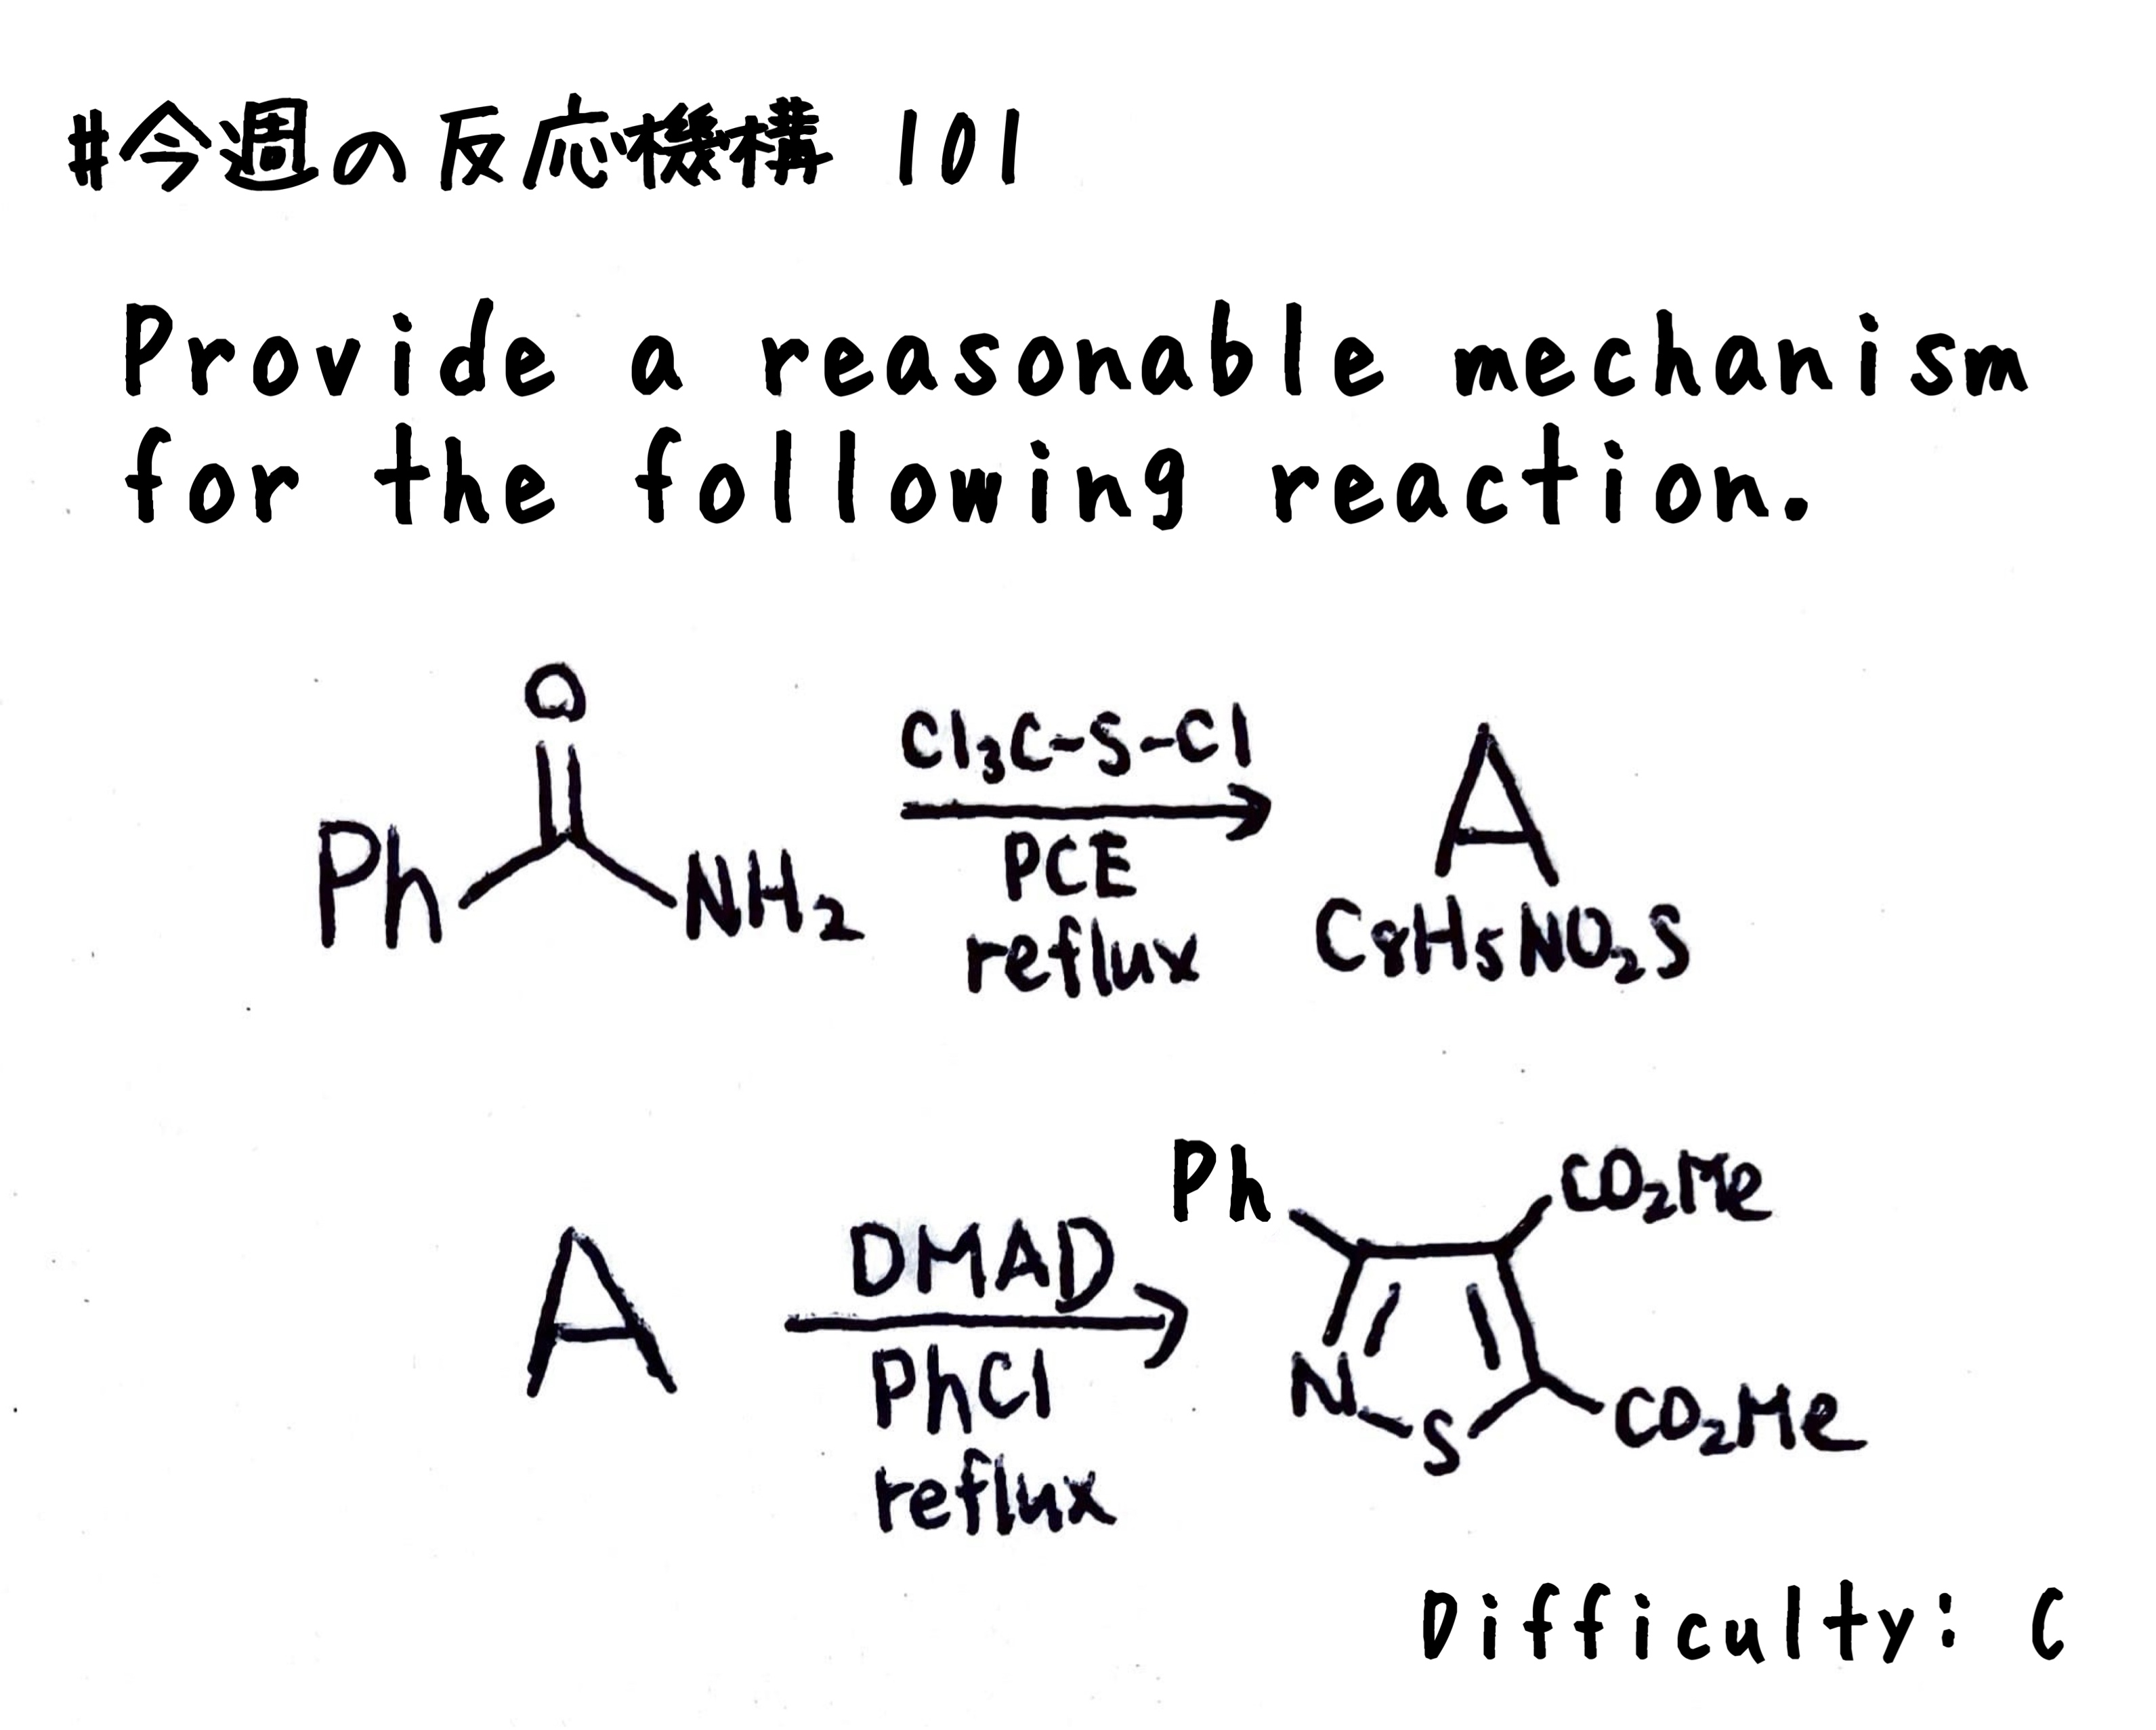 #今週の反応機構 101
Provide a reasonable mechanism
for the following reaction.
O
Ph NH2
Cl3C-S-Cl
PCE
reflux
A
C8H5NO2S
A
DMAD
PhCl
reflux
Ph CO2Me
N S CO2Me
Difficulty: C